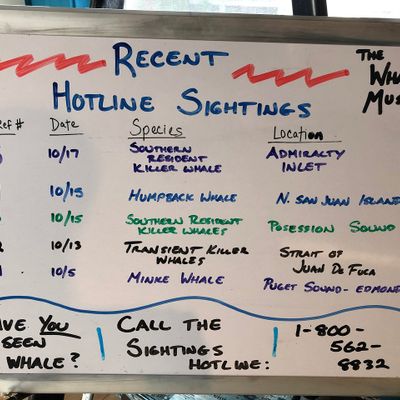 RECENT
HOTLINE SIGHTINGS
THE
WHA
MUS
Ref # Date Species Location
10/17 SOUTHERN RESIDENT KILLER WHALE ADMIRALTY INLET
10/15 HUMPBACK WHALE N. SAN JUAN ISLAN
10/15 SOUTHERN RESIDENT KILLER WHALES POSESSION SOUND
2 10/13 TRANSIENT KILLER WHALES STRAIT OF JUAN DE FUCA
10/5 MINKE WHALE PUGET SOUND- EDMON
AVE YOU
SEEN
WHALE?
CALL THE
SIGHTINGS
HOTLINE:
1-800-
562-
8832